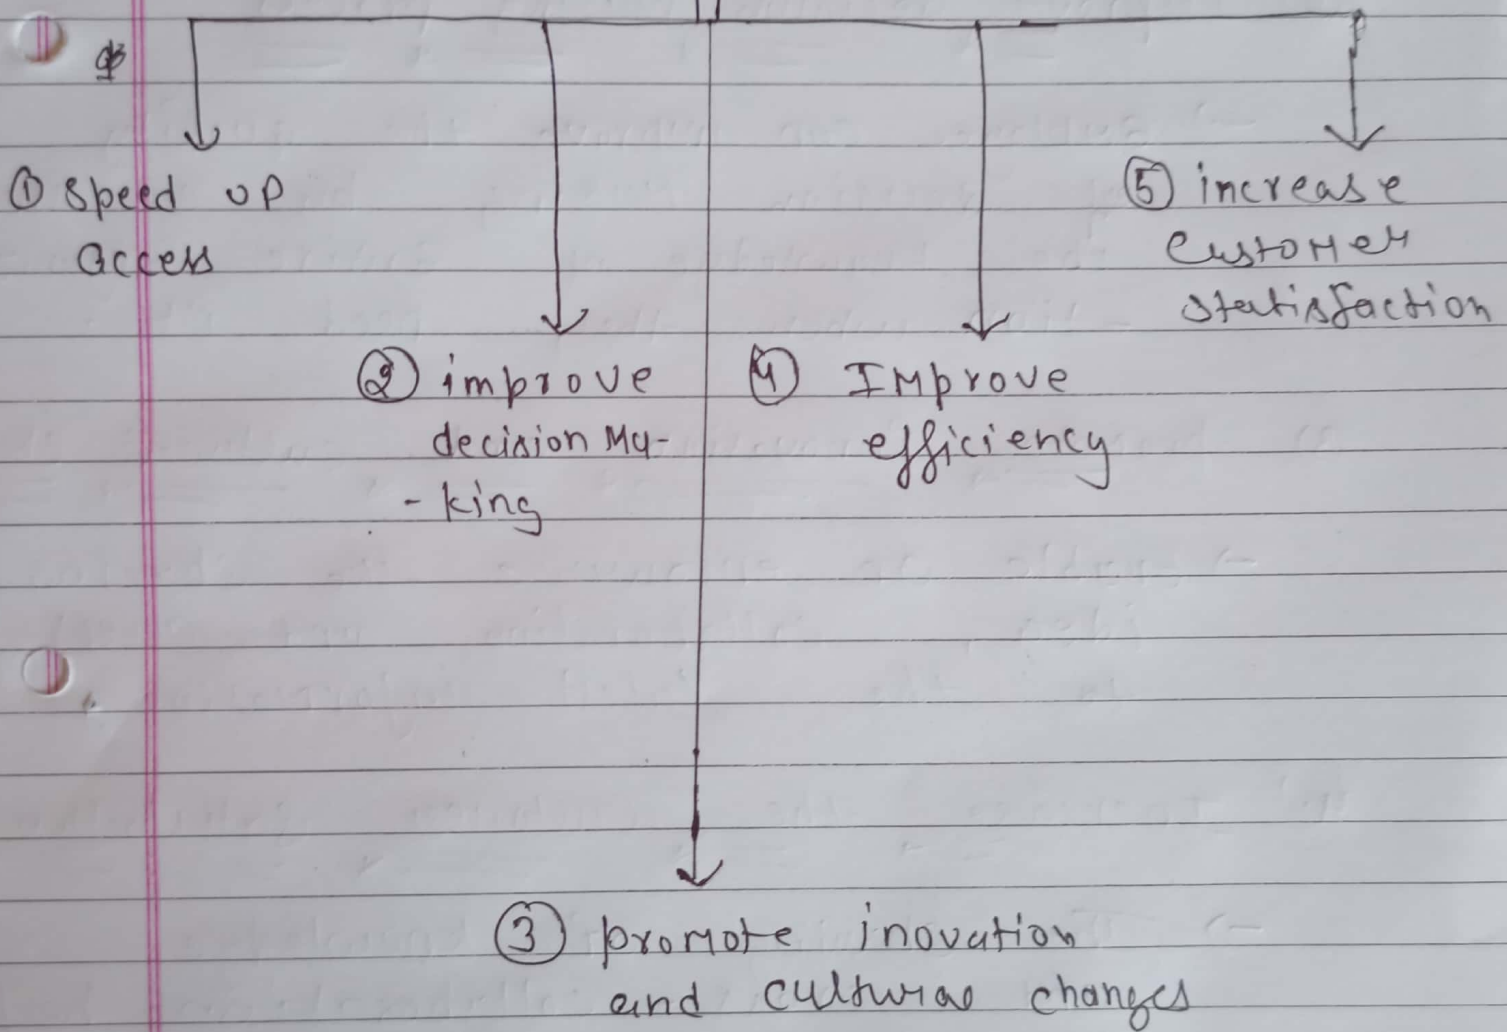 ① speed up
access
② improve
decision ma-
-king
③ promote inovation
and cultural changes
④ Improve
efficiency
⑤ increase
customer
statisfaction